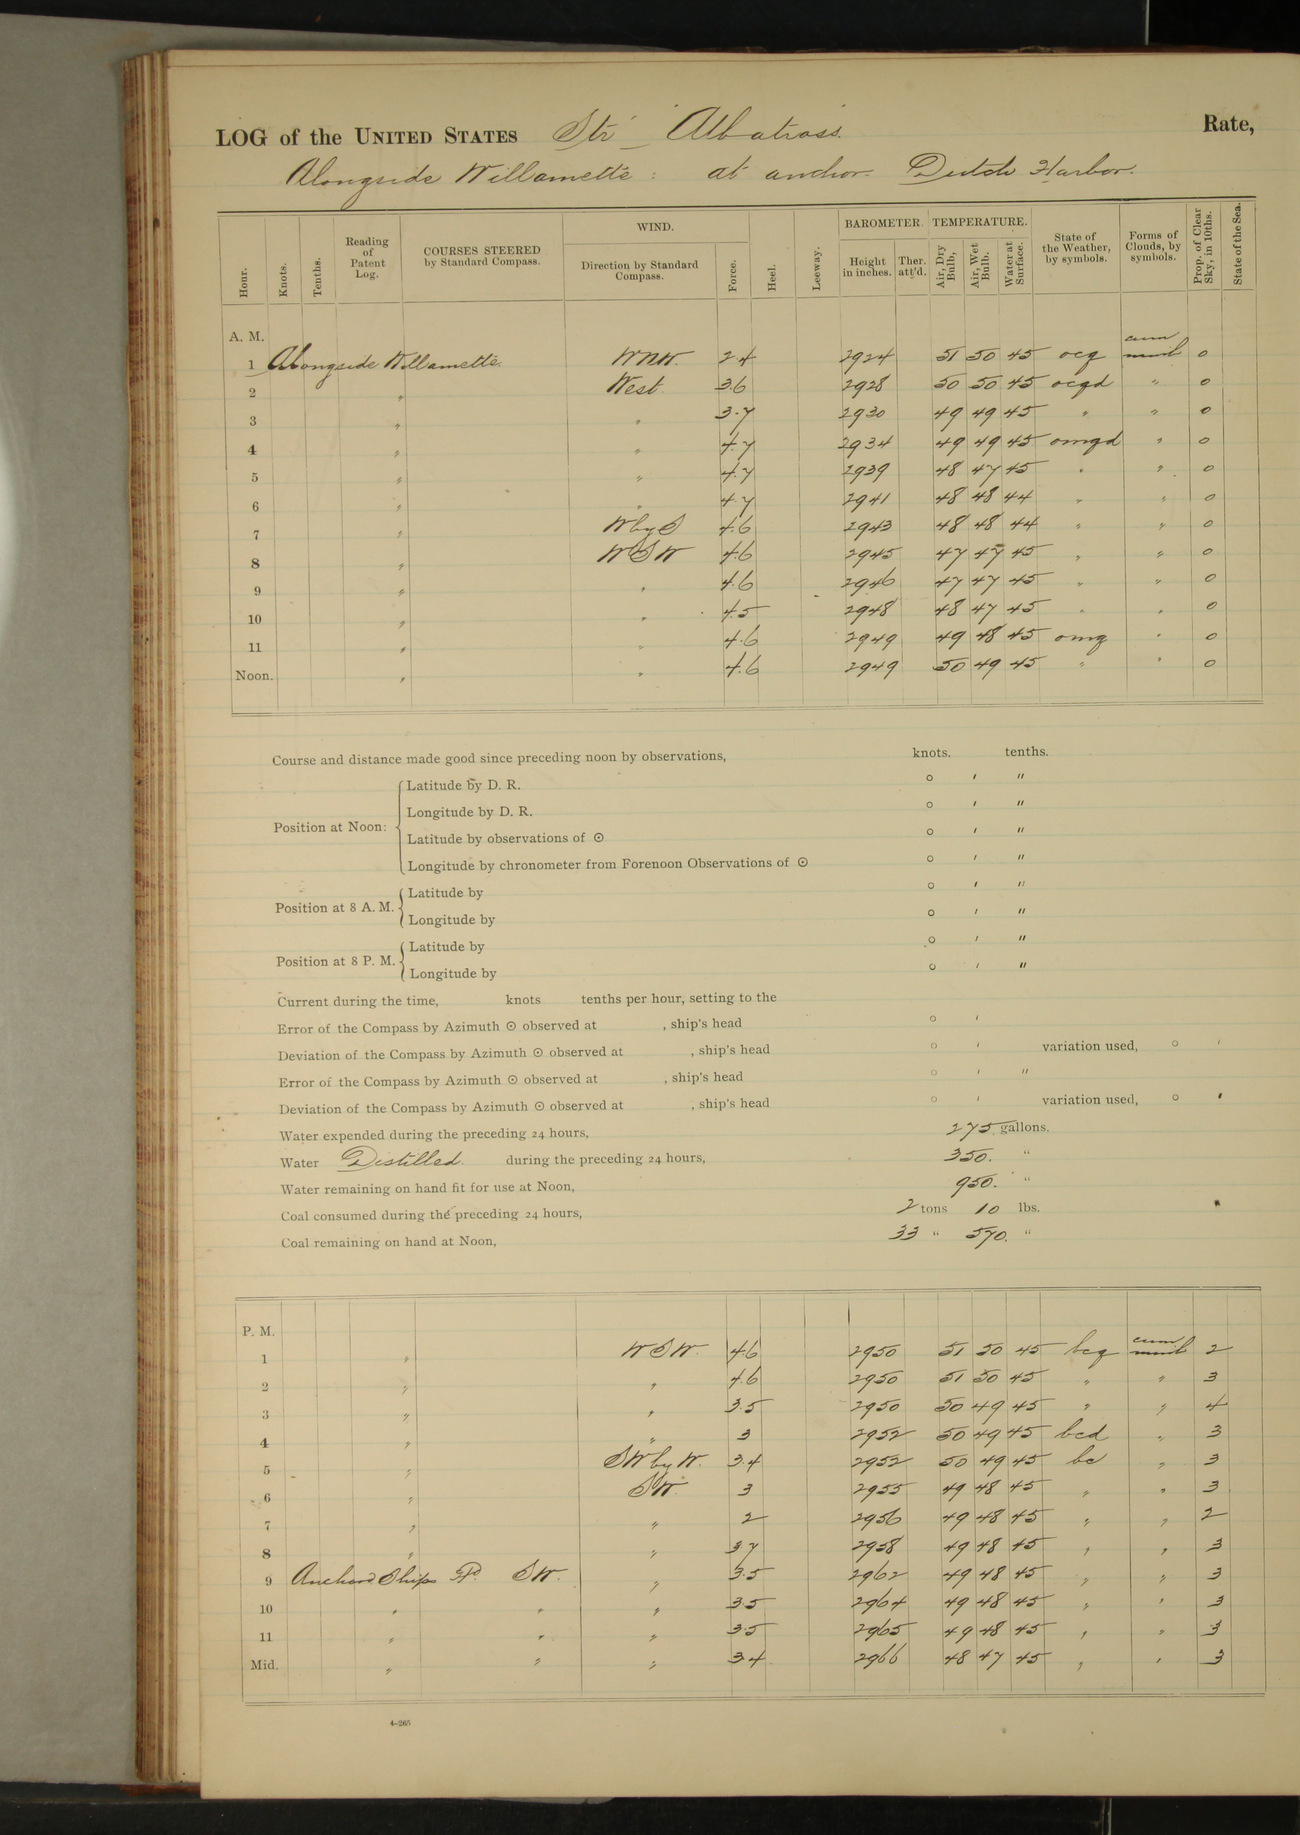 LOG of the UNITED STATES Str Albatross. Rate,
Alongside Willamette : at anchor. Dutch Harbor.
Hour. Knots. Tenths. Reading of Patent Log. COURSES STEERED by Standard Compass. WIND. Direction by Standard Compass. Force. Heel. Leeway. BAROMETER. Height in inches. Ther. att'd. TEMPERATURE. Air, Dry Bulb. Air, Wet Bulb. Water at Surface. State of the Weather, by symbols. Forms of Clouds, by symbols. Prop. of Clear Sky, in 10ths. State of the Sea.
A. M.
1 Alongside Willamette. WNW. 2.4 2924 51 50 45 ocq cum nimb 0
2 " West. 3.6 2928 50 50 45 ocqd " 0
3 " " 3.7 2930 49 49 45 " " 0
4 " " 4.7 2934 49 49 45 omqd " 0
5 " " 4.7 2939 48 47 45 " " 0
6 " " 4.7 2941 48 48 44 " " 0
7 " WbyS 4.6 2943 48 48 44 " " 0
8 " WSW 4.6 2945 47 47 45 " " 0
9 " " 4.6 2946 47 47 45 " " 0
10 " " 4.5 2948 48 47 45 " " 0
11 " " 4.6 2949 49 48 45 omq " 0
Noon. " " 4.6 2949 50 49 45 " " 0
Course and distance made good since preceding noon by observations, knots. tenths.
Position at Noon: Latitude by D. R. ° ' "
Longitude by D. R. ° ' "
Latitude by observations of ☉ ° ' "
Longitude by chronometer from Forenoon Observations of ☉ ° ' "
Position at 8 A. M. Latitude by ° ' "
Longitude by ° ' "
Position at 8 P. M. Latitude by ° ' "
Longitude by ° ' "
Current during the time, knots tenths per hour, setting to the
Error of the Compass by Azimuth ☉ observed at , ship's head ° '
Deviation of the Compass by Azimuth ☉ observed at , ship's head ° ' variation used, ° '
Error of the Compass by Azimuth ☉ observed at , ship's head ° ' "
Deviation of the Compass by Azimuth ☉ observed at , ship's head ° ' variation used, ° '
Water expended during the preceding 24 hours, 275 gallons.
Water Distilled. during the preceding 24 hours, 350. "
Water remaining on hand fit for use at Noon, 950. "
Coal consumed during the preceding 24 hours, 2 tons 10 lbs.
Coal remaining on hand at Noon, 33 " 570. "
P. M.
1 " WSW. 4.6 2950 51 50 45 bcq cum nimb 2
2 " " 4.6 2950 51 50 45 " " 3
3 " " 3.5 2950 50 49 45 " " 4
4 " " 3 2952 50 49 45 bcd " 3
5 " SWbyW. 3.4 2952 50 49 45 bc " 3
6 " SW. 3 2955 49 48 45 " " 3
7 " " 2 2956 49 48 45 " " 2
8 " " 3.7 2958 49 48 45 " " 3
9 Anchored Ships SW. " 3.5 2962 49 48 45 " " 3
10 " " " 3.5 2964 49 48 45 " " 3
11 " " " 3.5 2965 49 48 45 " " 3
Mid. " " " 3.4 2966 48 47 45 " " 3
4-265